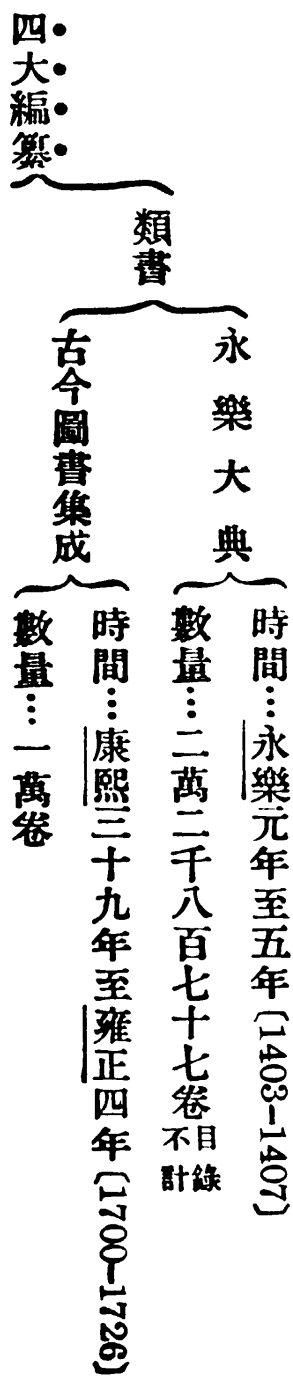 四大編纂
類書
永樂大典
時間…永樂元年至五年〔1403–1407〕
數量…二萬二千八百七十七卷目錄不計
古今圖書集成
時間…康熙三十九年至雍正四年〔1700–1726〕
數量…一萬卷